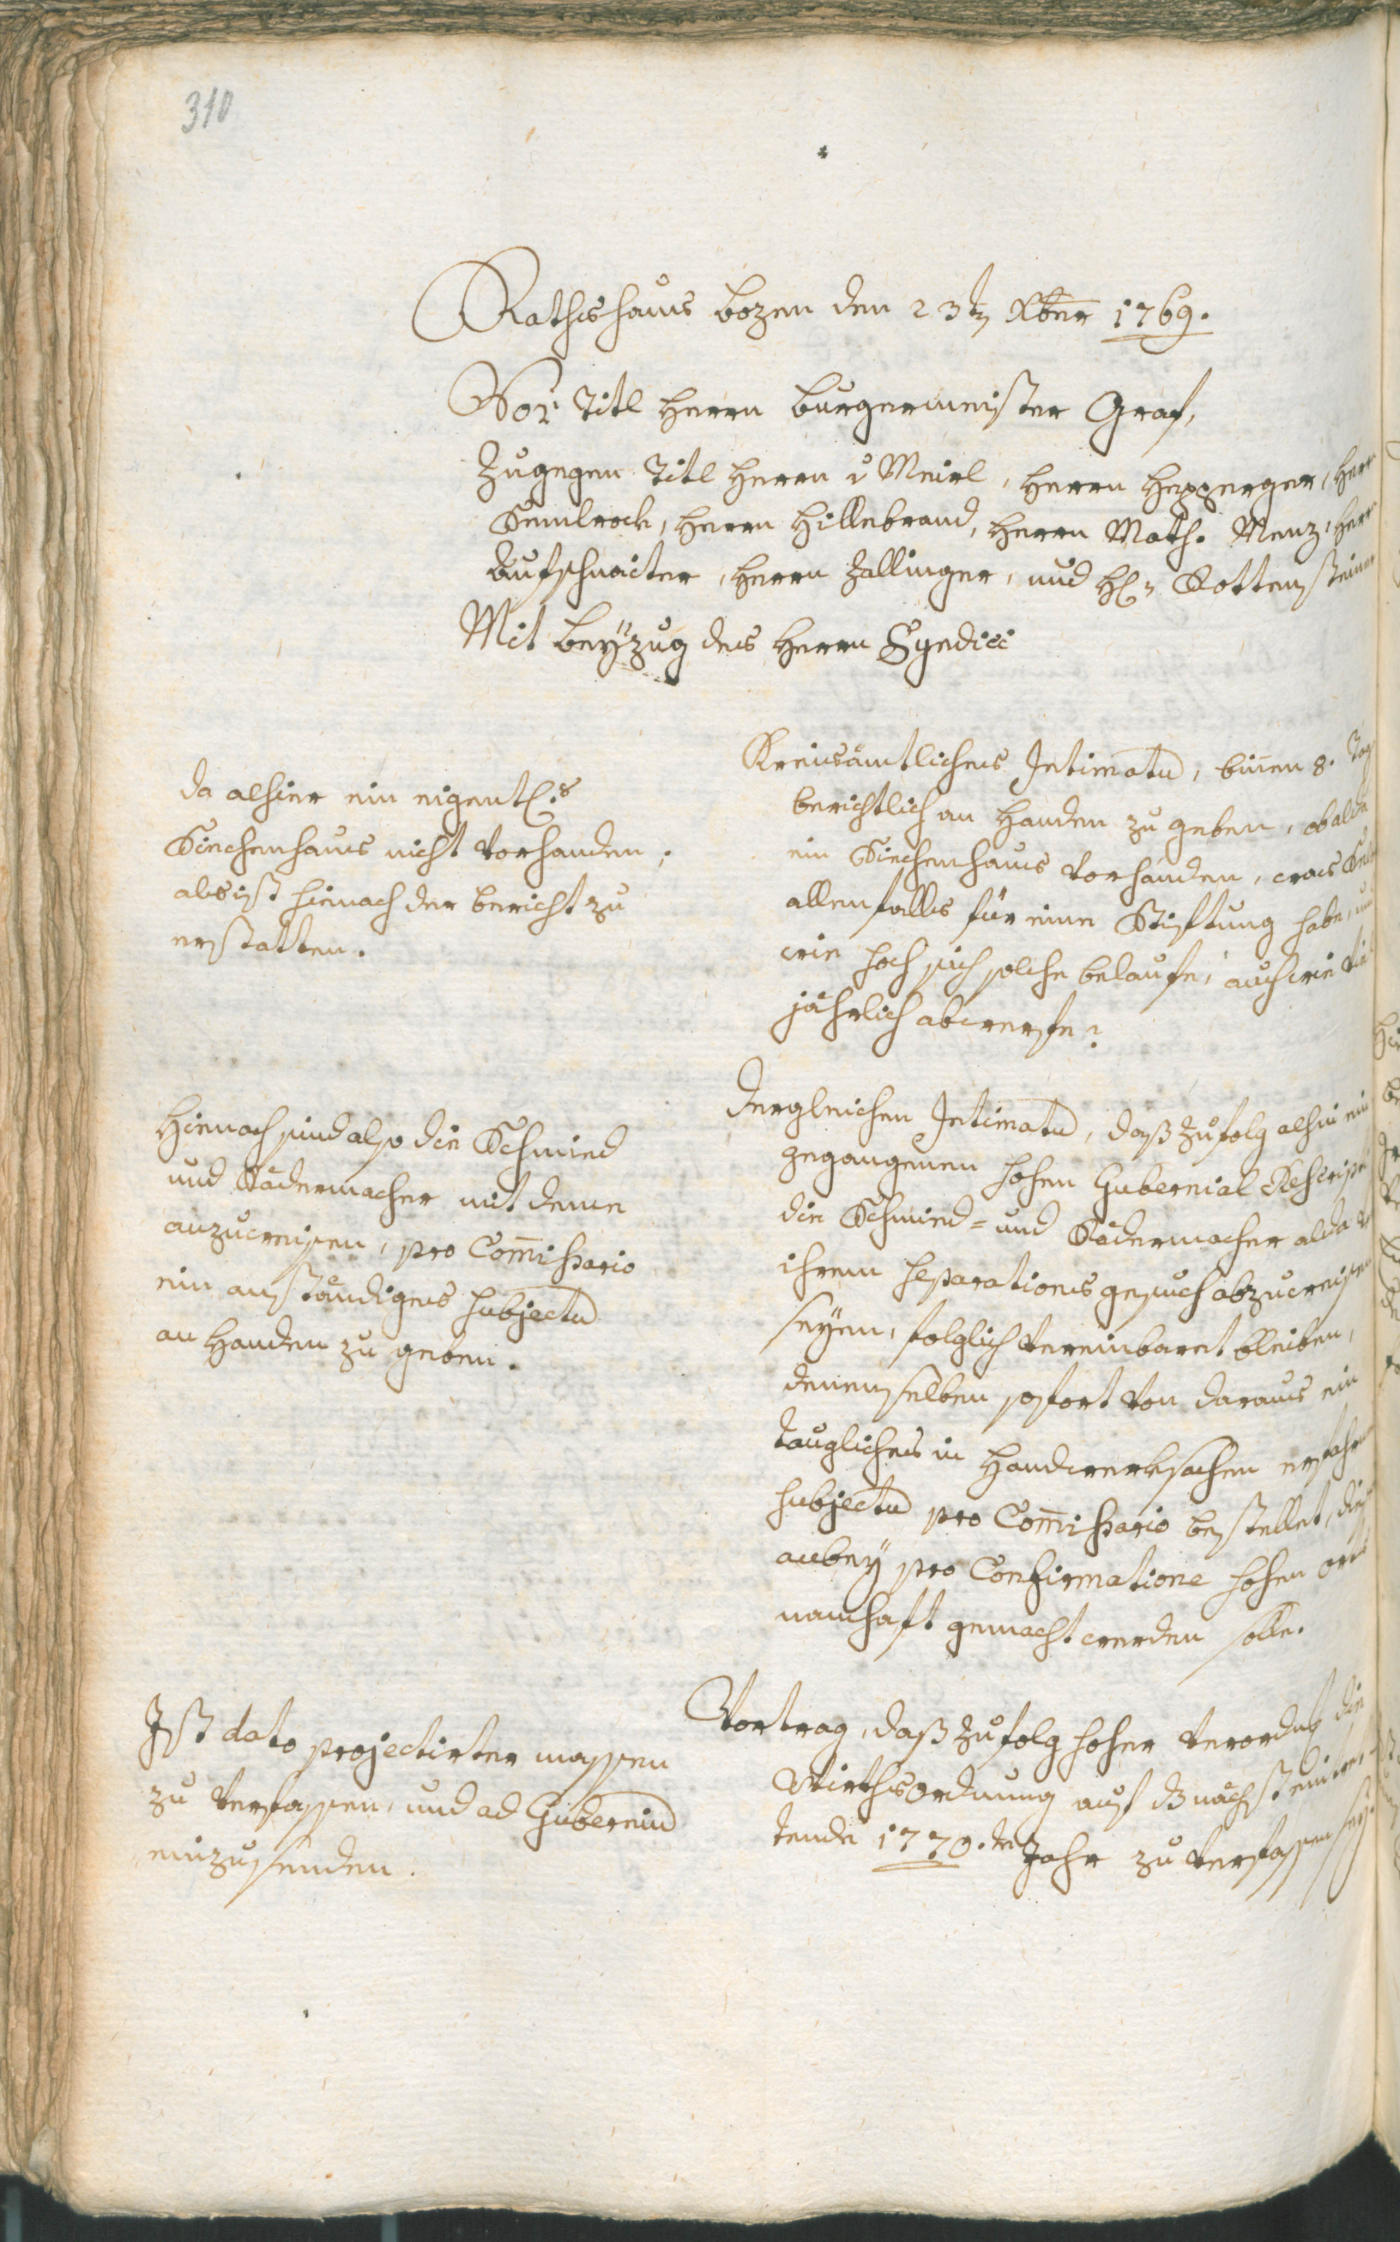 310
Rathshaus Bozen den 23tn Xber 1769.
Vor Titl Herrn Burgermeister Graf,
Zugegen Titl Herrn v Meirl, Herrn Hepperger, Herrn
Semlrock, Herrn Hillebrand, Herrn Math. Menz, Herrn
Aufschnaiter, Herrn Zallinger, und H: Rottensteiner
Mit beyzug des Herrn Syndici
Kreisämtliches Intimatum, binnen 8. Tag
berichtlich an Handen zu geben, ob alda
ein Siechenhaus vorhanden, was
allenfalls für eine Stiftung habe, und
wie hoch sich solche belaufe, auch wie vil
jährlich abwerfe?
da alhier ein eigentl:s
Siechenhaus nicht vorhanden,
als ist hienach der bericht zu
erstatten.
dergleichen Intimatum, daß zufolg alhie ein
gegangenen hohen Gubernial Rescript
die Schmied= und Rädermacher alda
ihrem separations gesuch abzuweisen
seyen, folglich vereinbaret bleiben,
denenselben sofort von daraus ein
taugliches in Handwerksachen erfahrnes
subjectum pro Commissario bestellet, dies
anbey pro Confirmatione hohen orts
namhaft gemacht werden solle.
Hienach sind also die Schmied
und Rädermacher mit deme
anzuweisen, pro Commissario
ein anständiges subjectum
an Handen zu geben.
Vortrag, daß zufolg hoher verordng die
Wirthsordnung auf das nächst eintre-
tende 1770.te Jahr zu verfassen sey.
Ist dato projectirter massen
zu verfassen, und ad Gubernium
einzusenden.